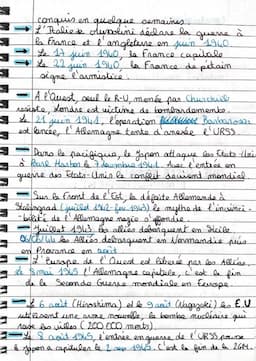 conquis en quelque semaines.
→ L'Italie de Mussolini déclare la guerre à
la France et l'angleterre en juin 1940
→ Le 17 juin 1940, la France capitule
→ Le 22 juin 1940, la France de pétain
signe l'armistice.
→ A l'Ouest, seul le R-U, menée par Churchill
resiste, Londre est victime de bombardements.
Le 21 juin 1941, l'opération Barbarossa
est lancée, l'Allemagne tente d'annexé l'URSS
→ Dans le pacifique, le Japon attaque les Etats-Unis
à Pearl Harbor le 7 1941. Avec l'entrée en
guerre des Etats-Unis le conflit devient mondial
→ Sur le Front de l'Est, la défaite Allemande à
Stalingrad (juillet 1942-fev 1943) le mythe de l'invinci-
bilité de l'Allemagne nazie s'effondre.
→ Juillet 1943, les alliés débarquent en Sicile
06/06/44 les Alliés débarquent en Normandie puis
en Provence en août
→ L'Europe de l'Ouest est libérée par les Alliés,
Le 8 mai 1945 l'Allemagne capitule, c'est la fin
de la Seconde Guerre mondiale en Europe
→ Le 6 août (Hiroshima) et le 9 août (Nagasaki) les E.U
utilisent une arme nouvelle, la bombe nucléaire qui
rase les villes (200 000 morts)
→ Le 8 août 1945, l'entrée en guerre de l'URSS pousse
le japon a capituler le 2 sep 1945. C'est la fin de la 2GM.